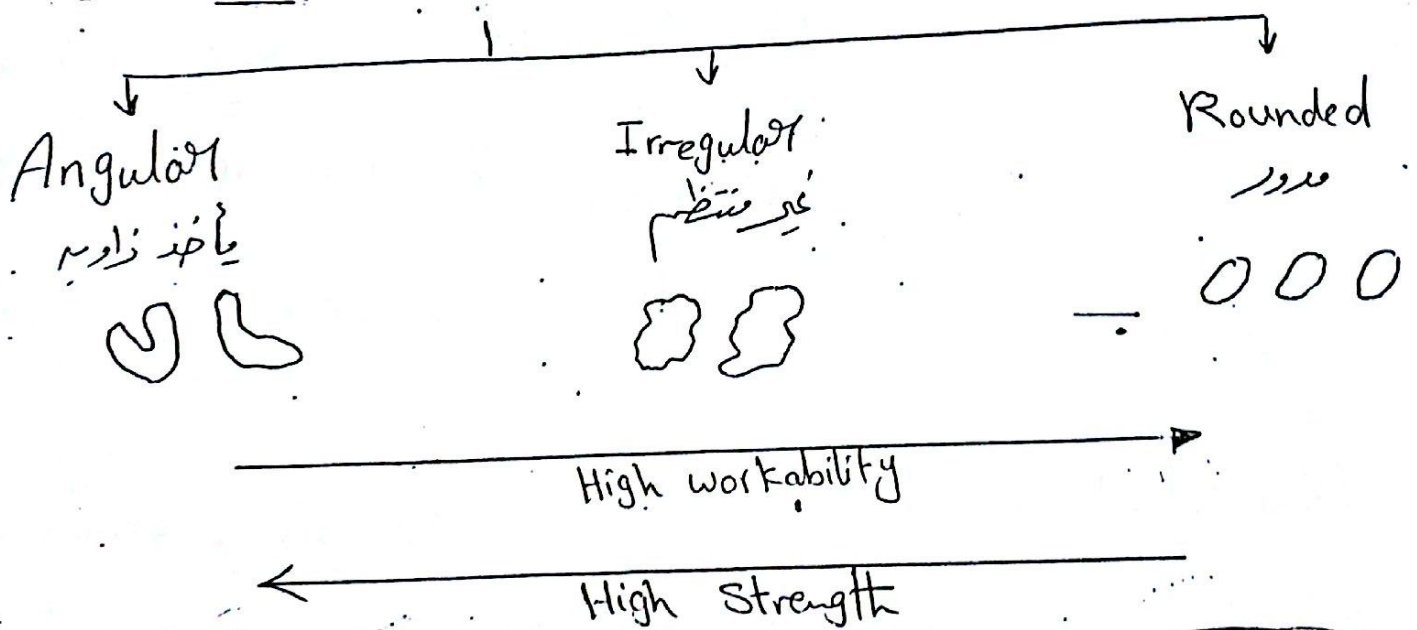 Angular
يأخذ زاويه
Irregular
غير منتظم
Rounded
مدور
High workability
High Strength